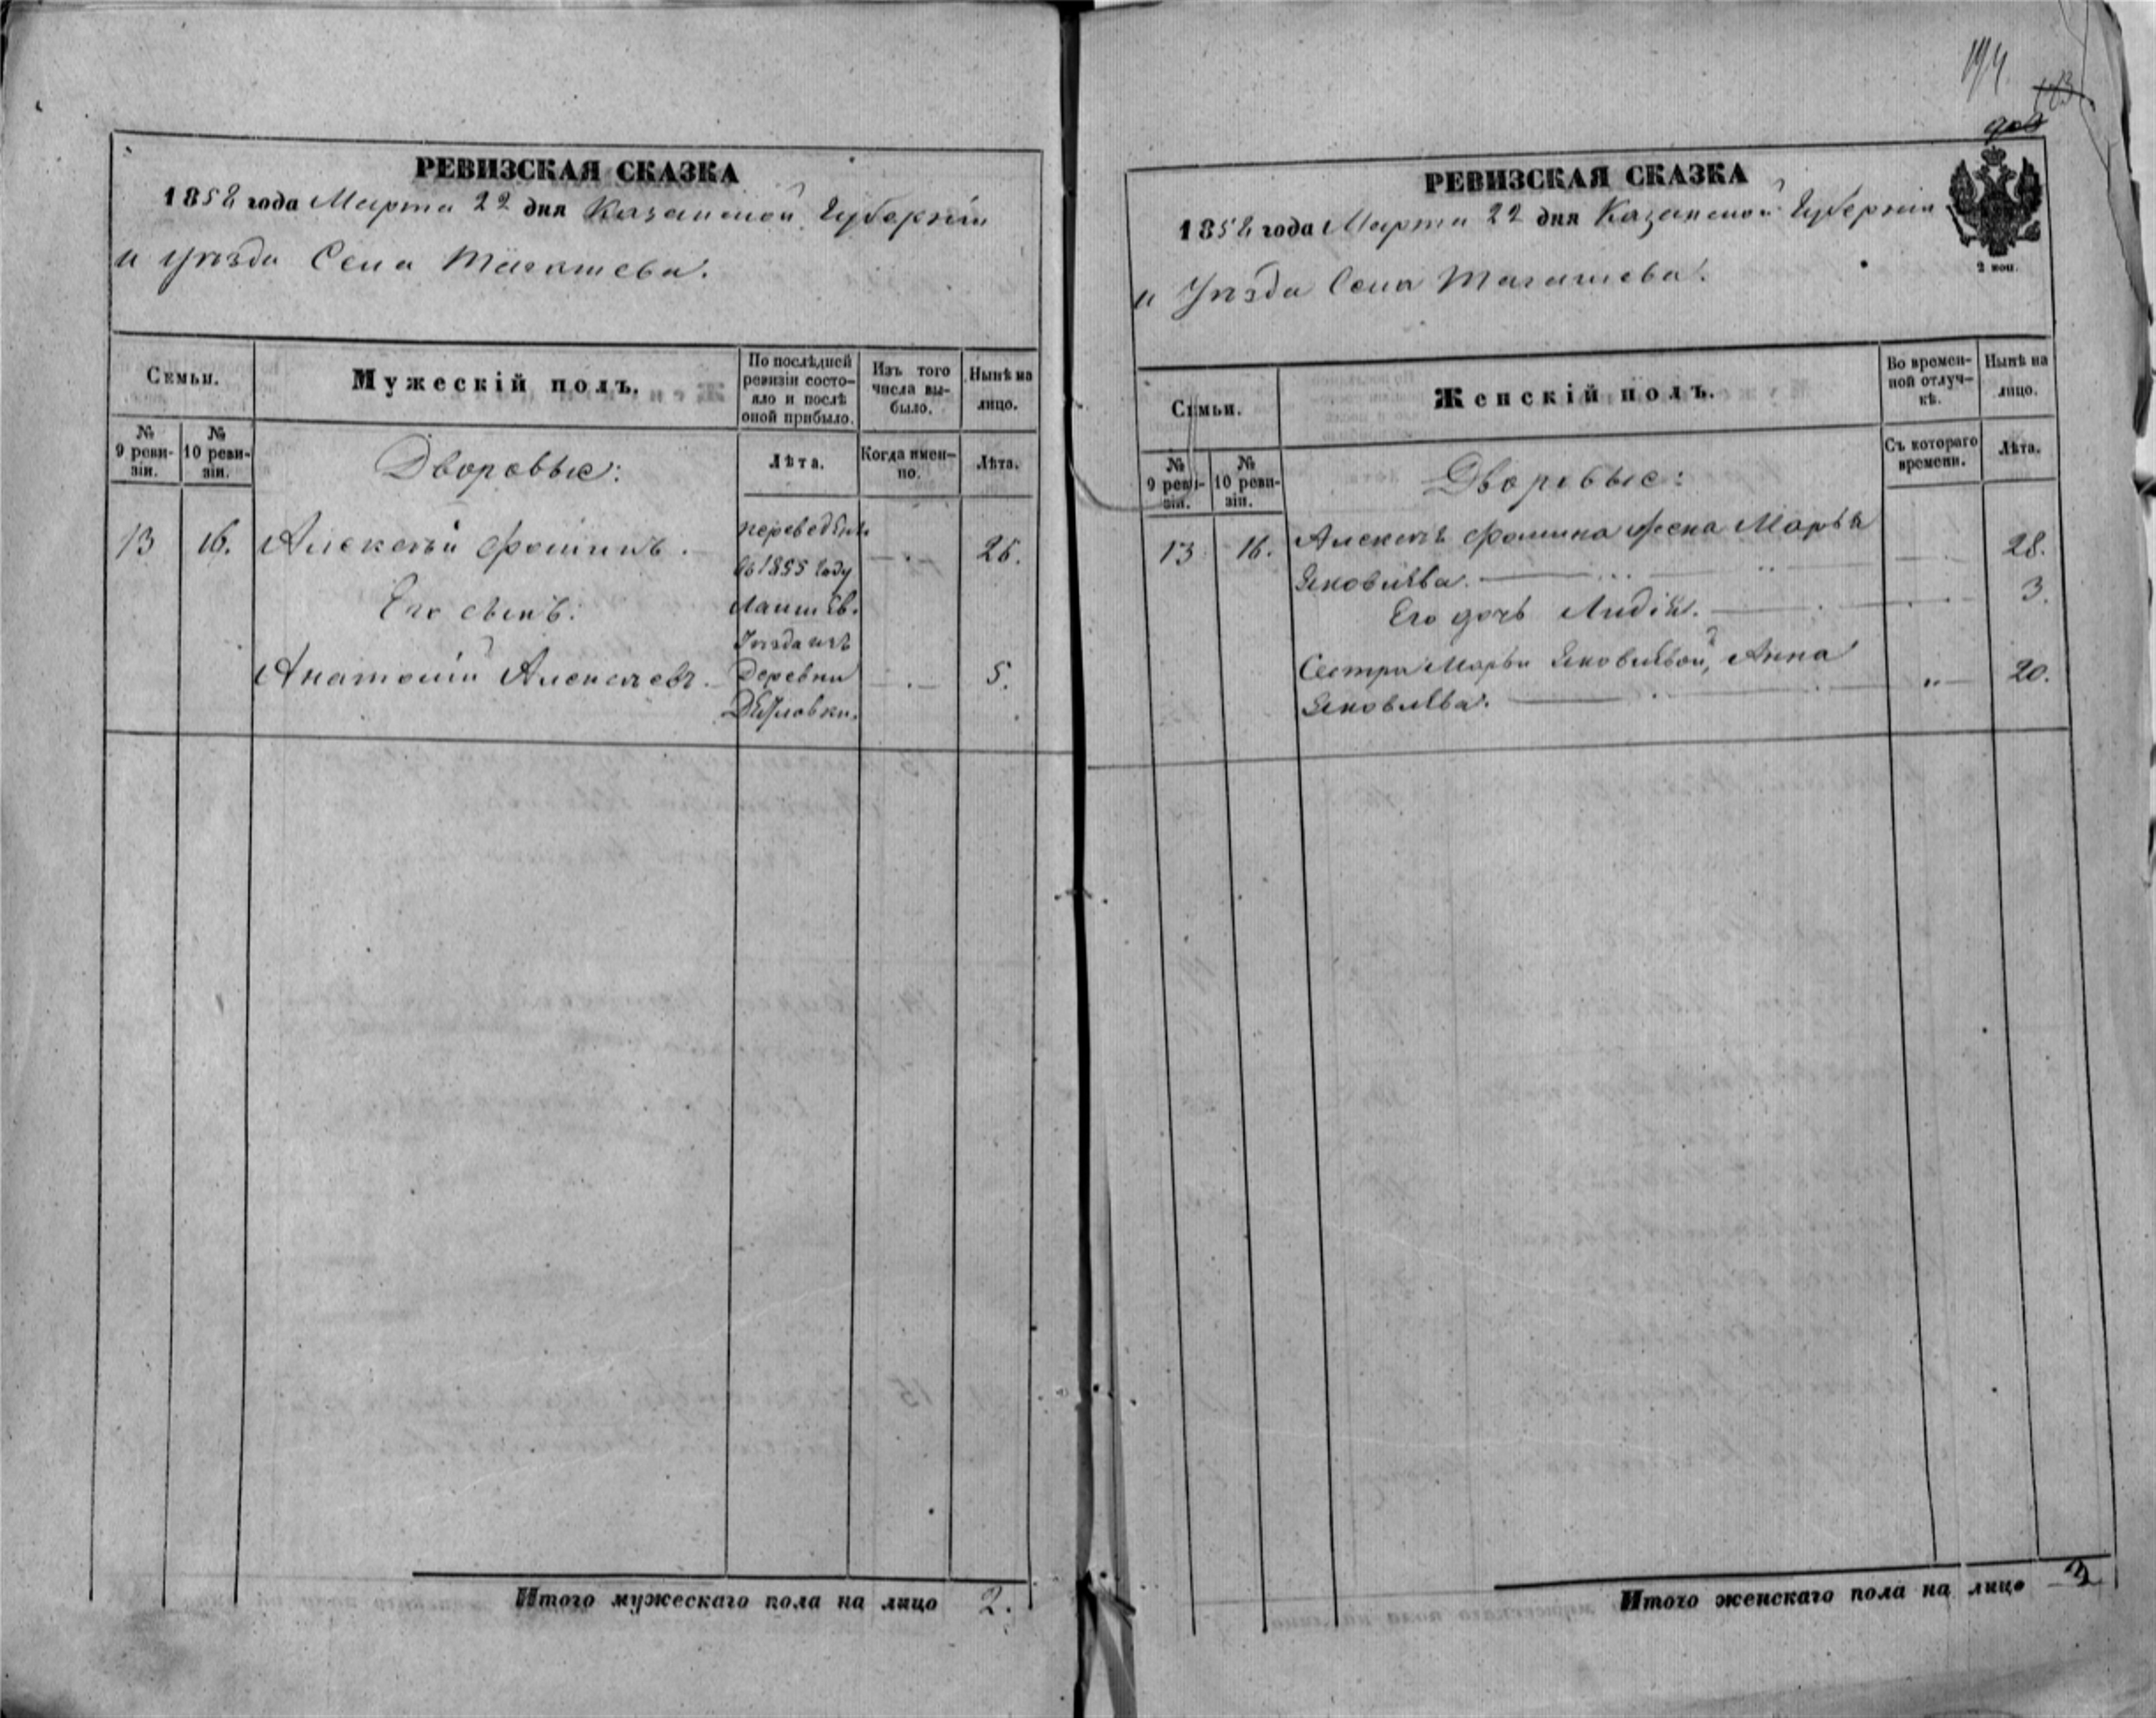 РЕВИЗСКАЯ СКАЗКА
1858 года Марта 22 дня Казанской Губерніи
и уѣзда Села Тагашева.
Семьи.
Мужескій полъ.
По послѣдней ревизіи состояло и послѣ оной прибыло.
Изъ того числа выбыло.
Нынѣ на лицо.
№ 9 ревизіи.
№ 10 ревизіи.
Дворовые:
Лѣта.
Когда именно.
Лѣта.
13 16. Алексѣй Фоминъ. 26.
Его сынъ:
Анатолій Алексѣевъ. 5.
переведены
въ 1855 году
Лаишев.
Уѣзда изъ
Деревни
Итого мужескаго пола на лицо 2.
194
183
РЕВИЗСКАЯ СКАЗКА
1858 года Марта 22 дня Казанской Губерніи
и Уѣзда Села Тагашева.
2 коп.
Семьи.
Женскій полъ.
Во временной отлучкѣ.
Нынѣ на лицо.
№ 9 ревизіи.
№ 10 ревизіи.
Дворовые:
Съ котораго времени.
Лѣта.
13 16. Алексѣя Фомина жена Марья
Яковлева. 28.
Его дочь Лидія. 3.
Сестра Марьи Яковлевой, Анна
Яковлева. 20.
Итого женскаго пола на лицо 3